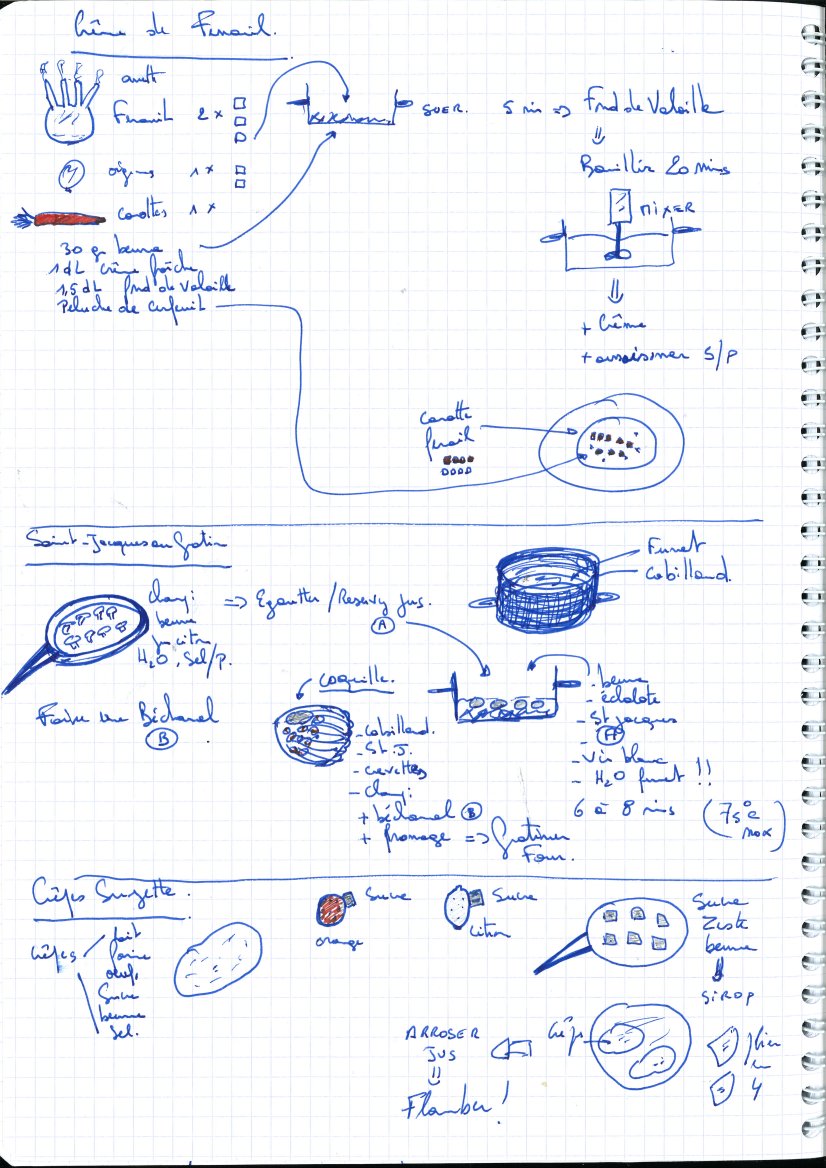 Crème de Fenouil.
aneth
Fenouil 2 x
oignons 1 x
carottes 1 x
30 gr beurre
1 dL crème fraîche
1,5 dL fond de volaille
Peluche de cerfeuil
SUER. 5 min => Fond de Volaille
Bouillir 20 mins
MIXER
+ Crème
+ assaisonner S/P
Carotte
fenouil
Saint-Jacques en gratin
champi
beurre
jus citron
H2O, Sel/P.
=> Egoutter / Reserver jus.
A
Fumet
Cabillaud.
Faire une Béchamel
B
coquille.
- cabillaud.
- St. J.
- crevettes
- champi
+ béchamel B
+ fromage => Gratiner
Four.
- beurre
- échalote
- St Jacques
- A
- Vin blanc
- H2O fumet !!
6 à 8 mins (75°C
max)
Crêpes Suzette.
crêpes
lait
farine
oeufs
Sucre
beurre
Sel.
Sucre
orange
Sucre
Citron
Sucre
Zeste
beurre
SIROP
Crêpes
plier
en
4
ARROSER
JUS
Flamber !